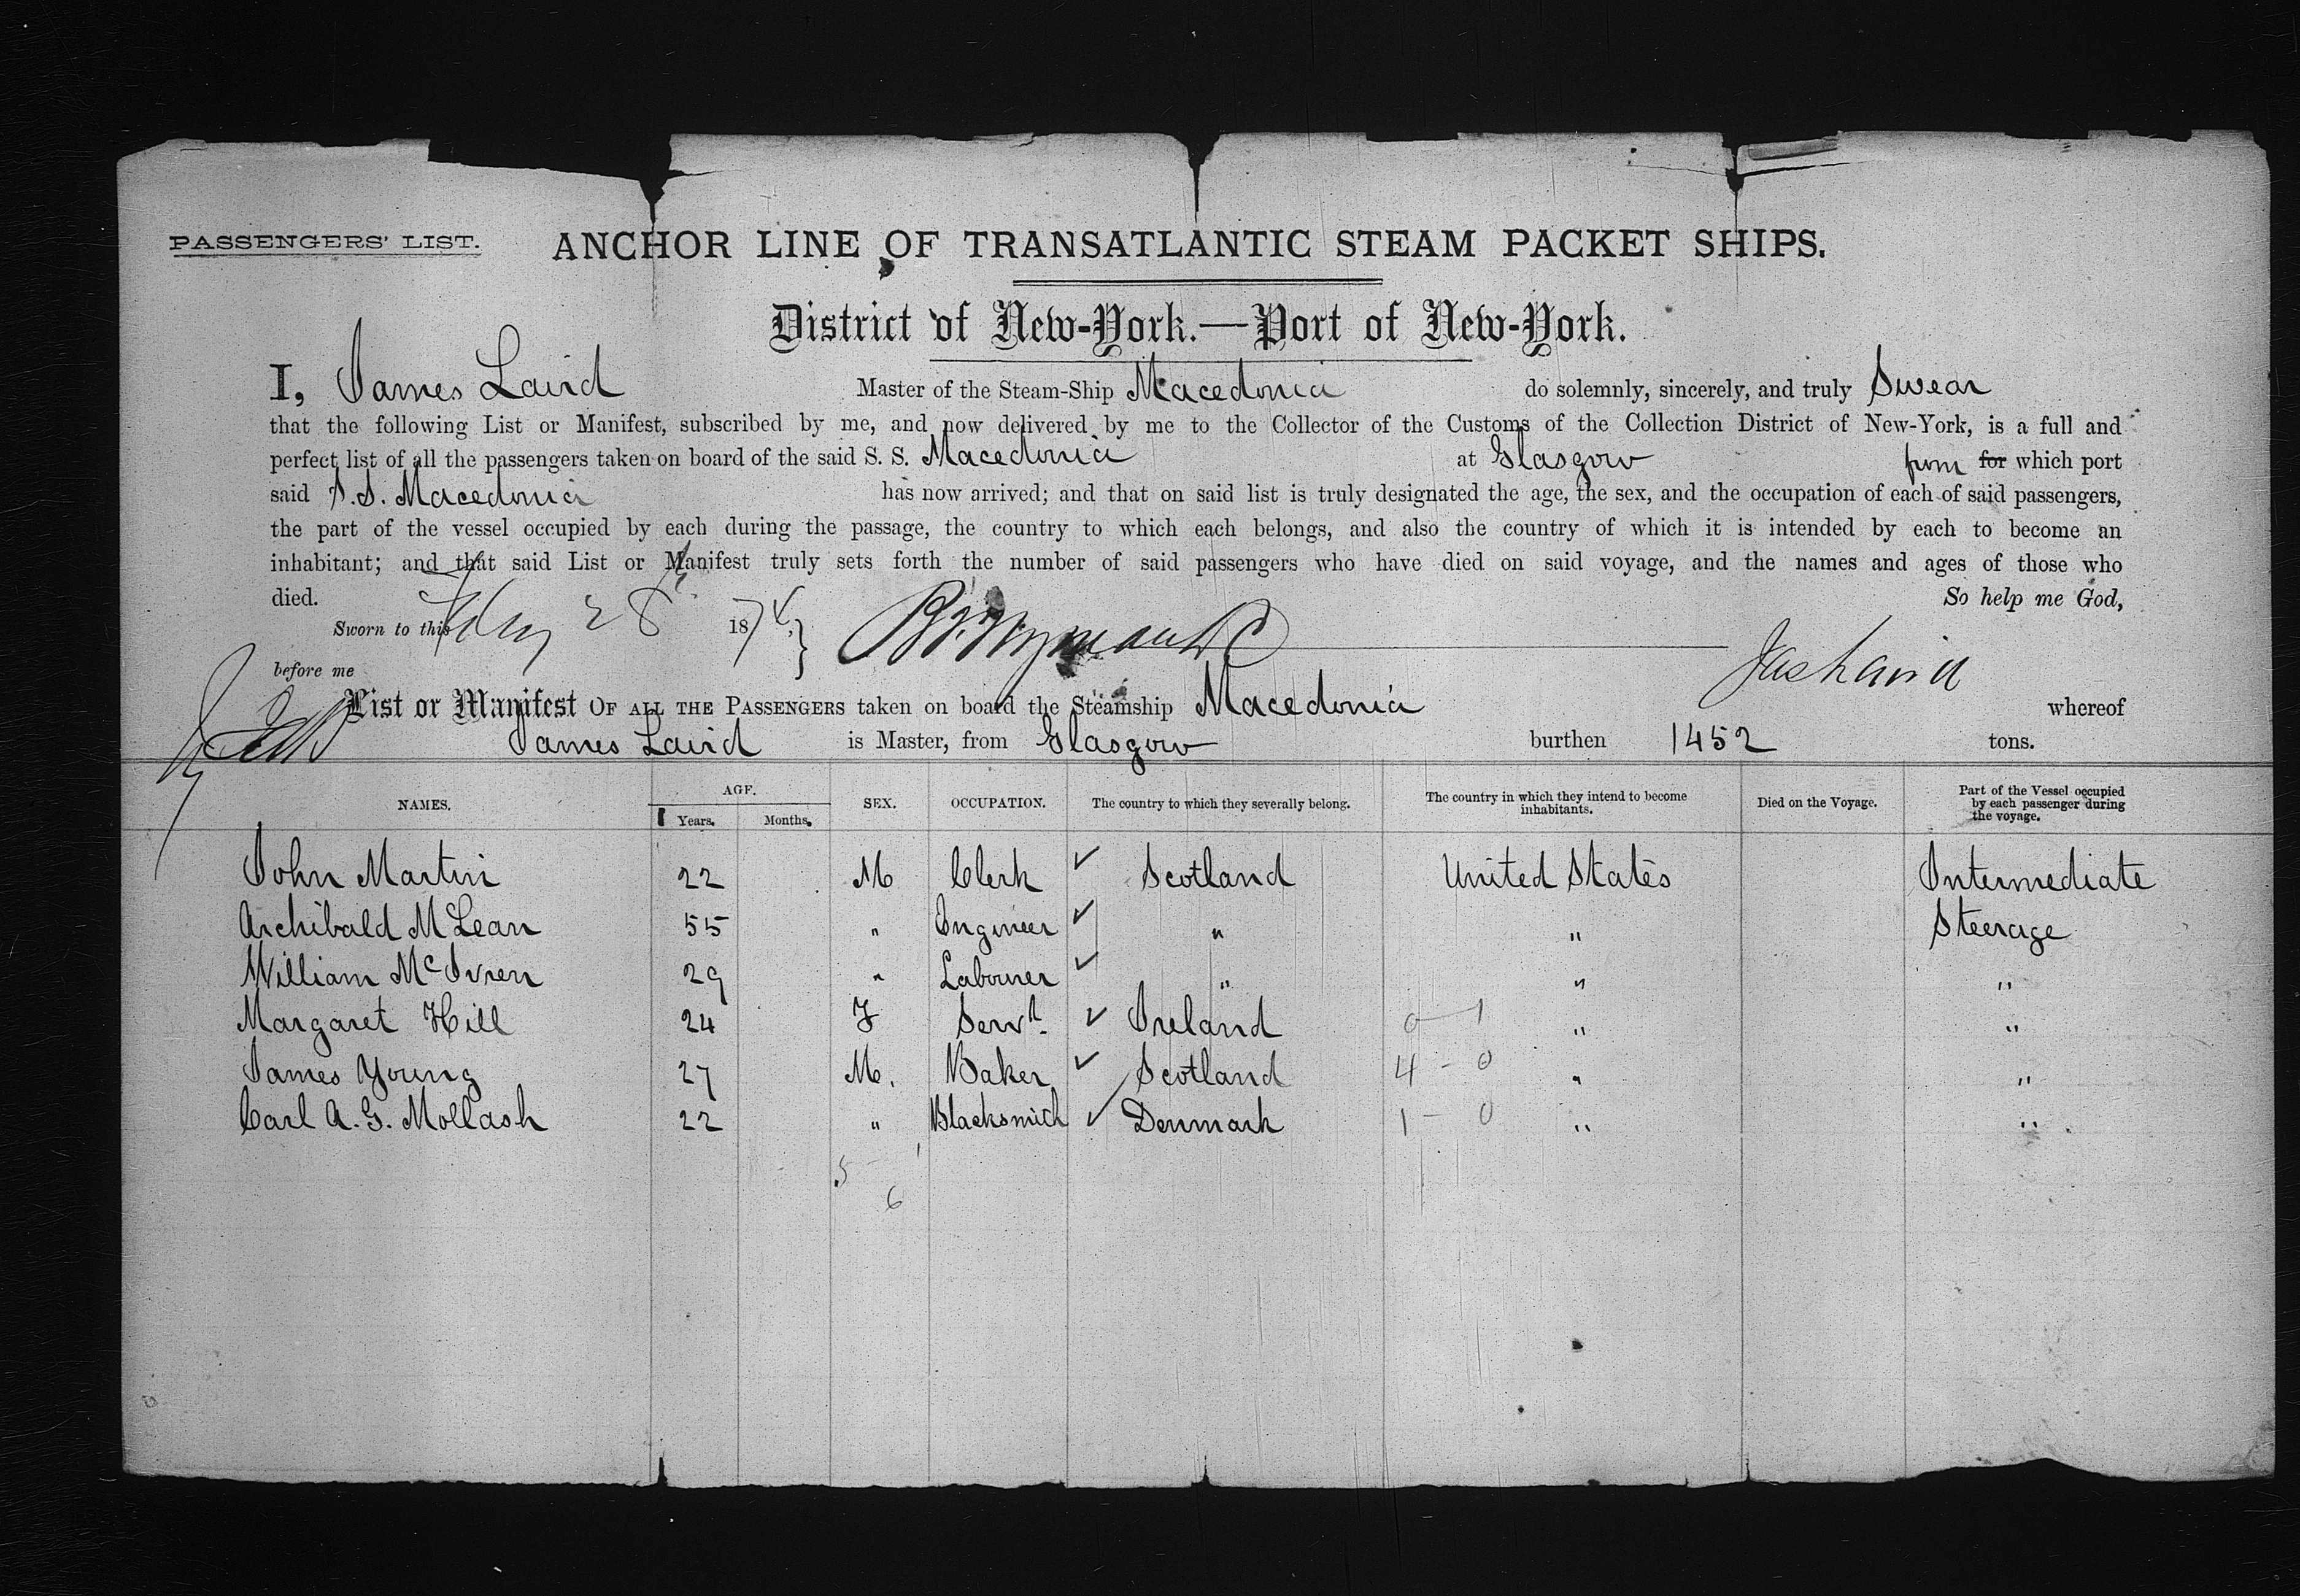 PASSENGERS' LIST. ANCHOR LINE OF TRANSATLANTIC STEAM PACKET SHIPS.
District of New-York.—Port of New-York.
I, James Laird Master of the Steam-Ship Macedonia do solemnly, sincerely, and truly Swear
that the following List or Manifest, subscribed by me, and now delivered by me to the Collector of the Customs of the Collection District of New-York, is a full and
perfect list of all the passengers taken on board of the said S. S. Macedonia at Glasgow from for which port
said S.S. Macedonia has now arrived; and that on said list is truly designated the age, the sex, and the occupation of each of said passengers,
the part of the vessel occupied by each during the passage, the country to which each belongs, and also the country of which it is intended by each to become an
inhabitant; and that said List or Manifest truly sets forth the number of said passengers who have died on said voyage, and the names and ages of those who
died. So help me God,
Sworn to this 28 1874 }
before me Jas Laird
List or Manifest OF ALL THE PASSENGERS taken on board the Steamship Macedonia whereof
James Laird is Master, from Glasgow burthen 1452 tons.
NAMES. AGE. SEX. OCCUPATION. The country to which they severally belong. The country in which they intend to become inhabitants. Died on the Voyage. Part of the Vessel occupied by each passenger during the voyage.
Years. Months.
John Martin 22 M Clerk ✓ Scotland United States Intermediate
Archibald M Lean 55 " Engineer ✓ " " Steerage
William Mc Ivren 29 " Labourer ✓ " " "
Margaret Hill 24 F Servt. ✓ Ireland 0 - 1 " "
James Young 27 M. Baker ✓ Scotland 4 - 0 " "
Carl A. G. Mollash 22 " Blacksmith ✓ Denmark 1 - 0 " "
5 - 1
6